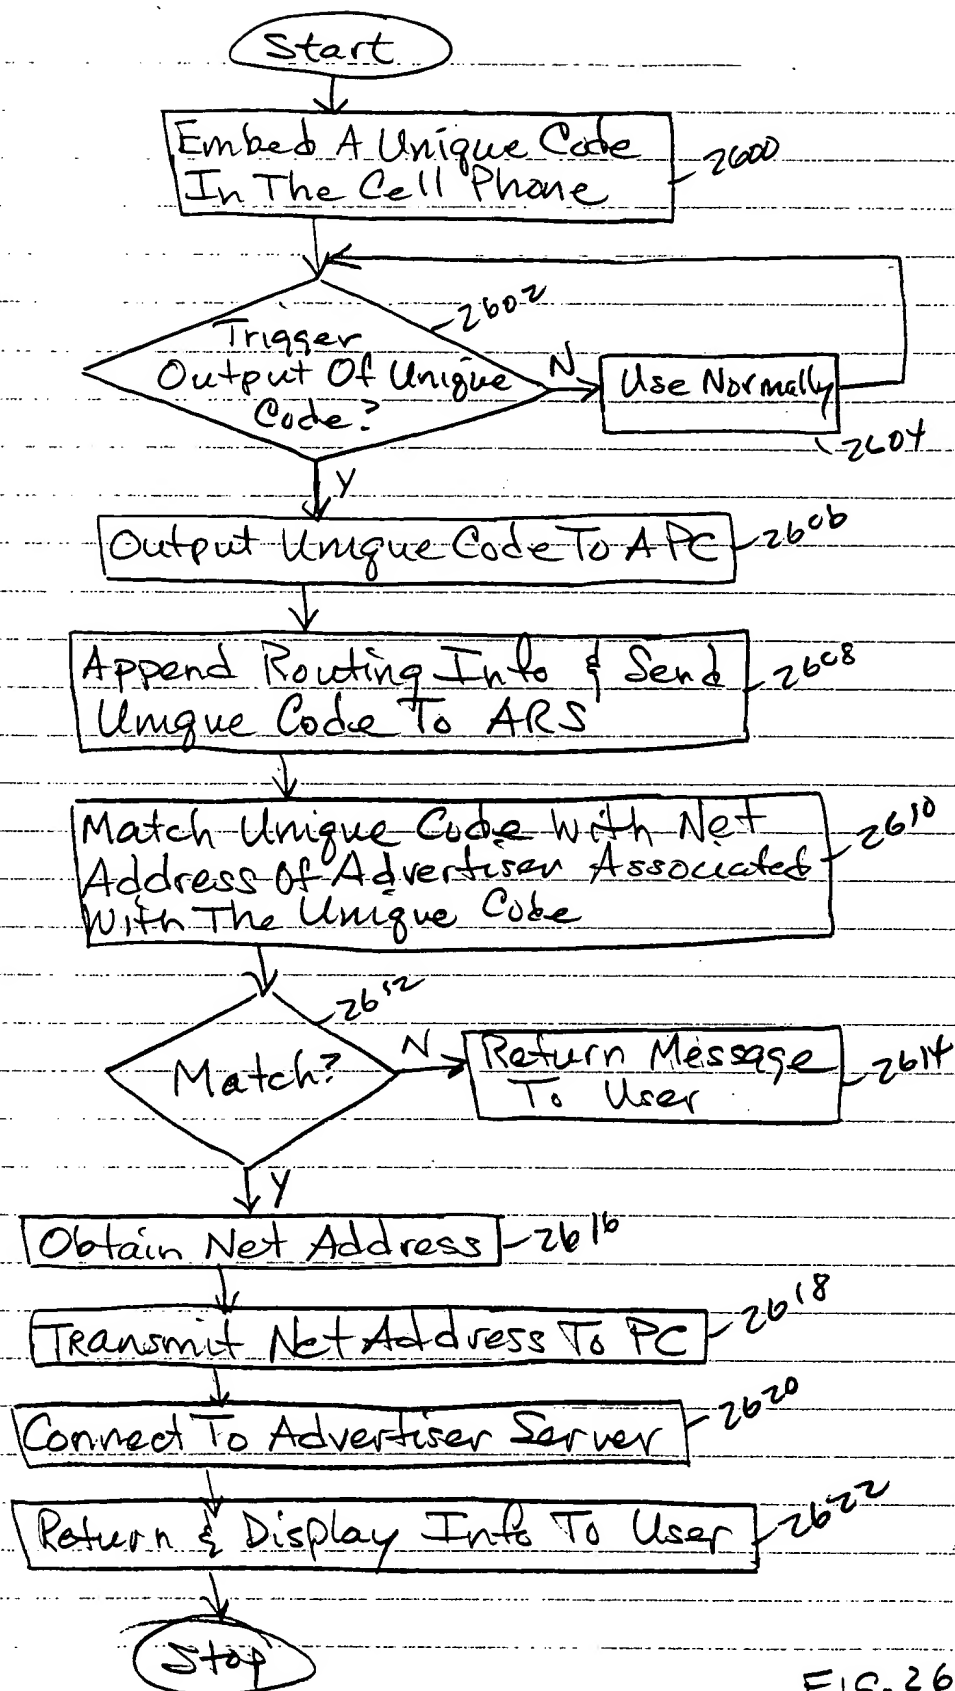 Start
Embed A Unique Code
In The Cell Phone
2600
2602
Trigger
Output Of Unique
Code?
N
Use Normally
2604
Y
Output Unique Code To A PC
2606
Append Routing Info & Send
Unique Code To ARS
2608
Match Unique Code With Net
Address Of Advertiser Associated
With The Unique Code
2610
2612
Match?
N
Return Message
To User
2614
Y
Obtain Net Address
2616
Transmit Net Address To PC
2618
Connect To Advertiser Server
2620
Return & Display Info To User
2622
Stop
FIG. 26